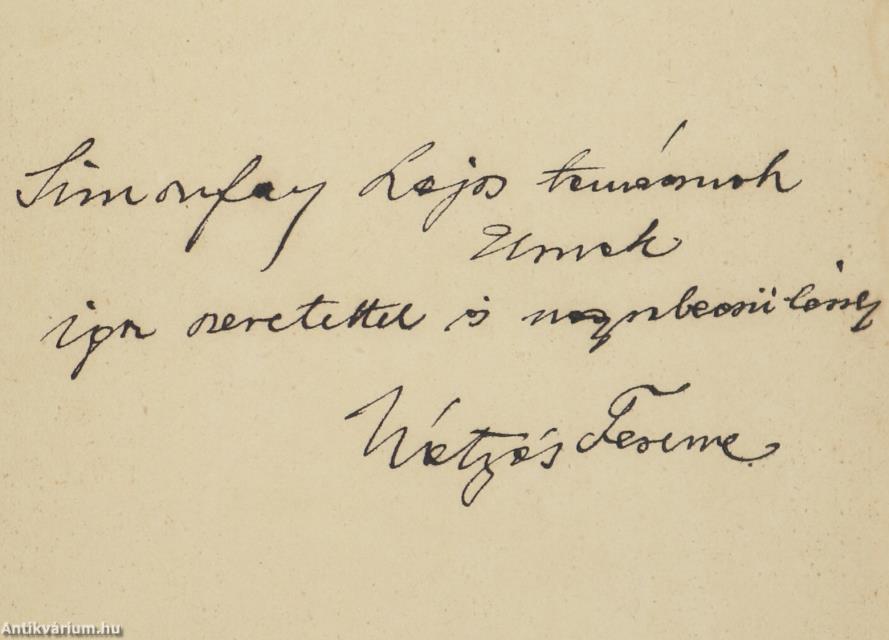 Simonfay Lajos tanárnak
Urnak
igaz szeretettel és nagyrabecsüléssel
Ferenc
Antikvárium.hu